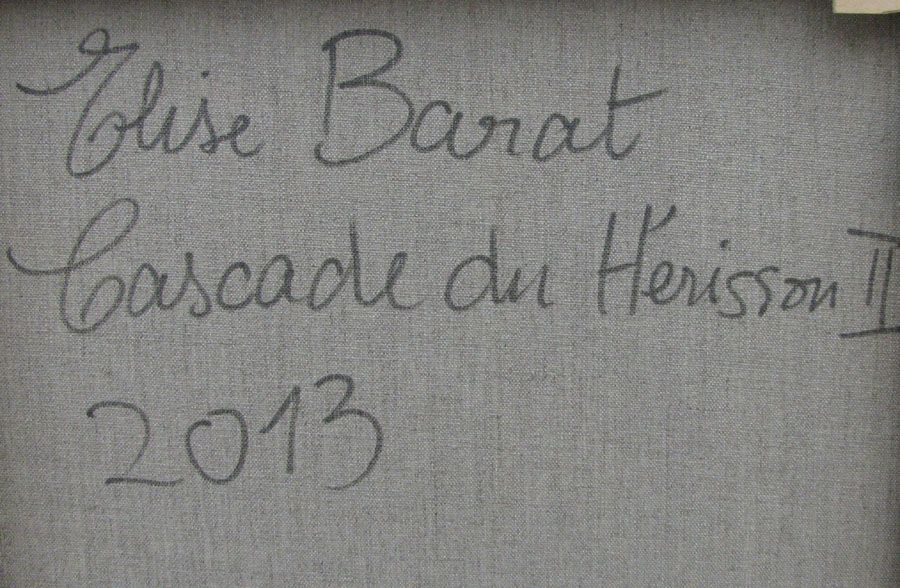 Elise Barat
Cascade du Hérisson II
2013